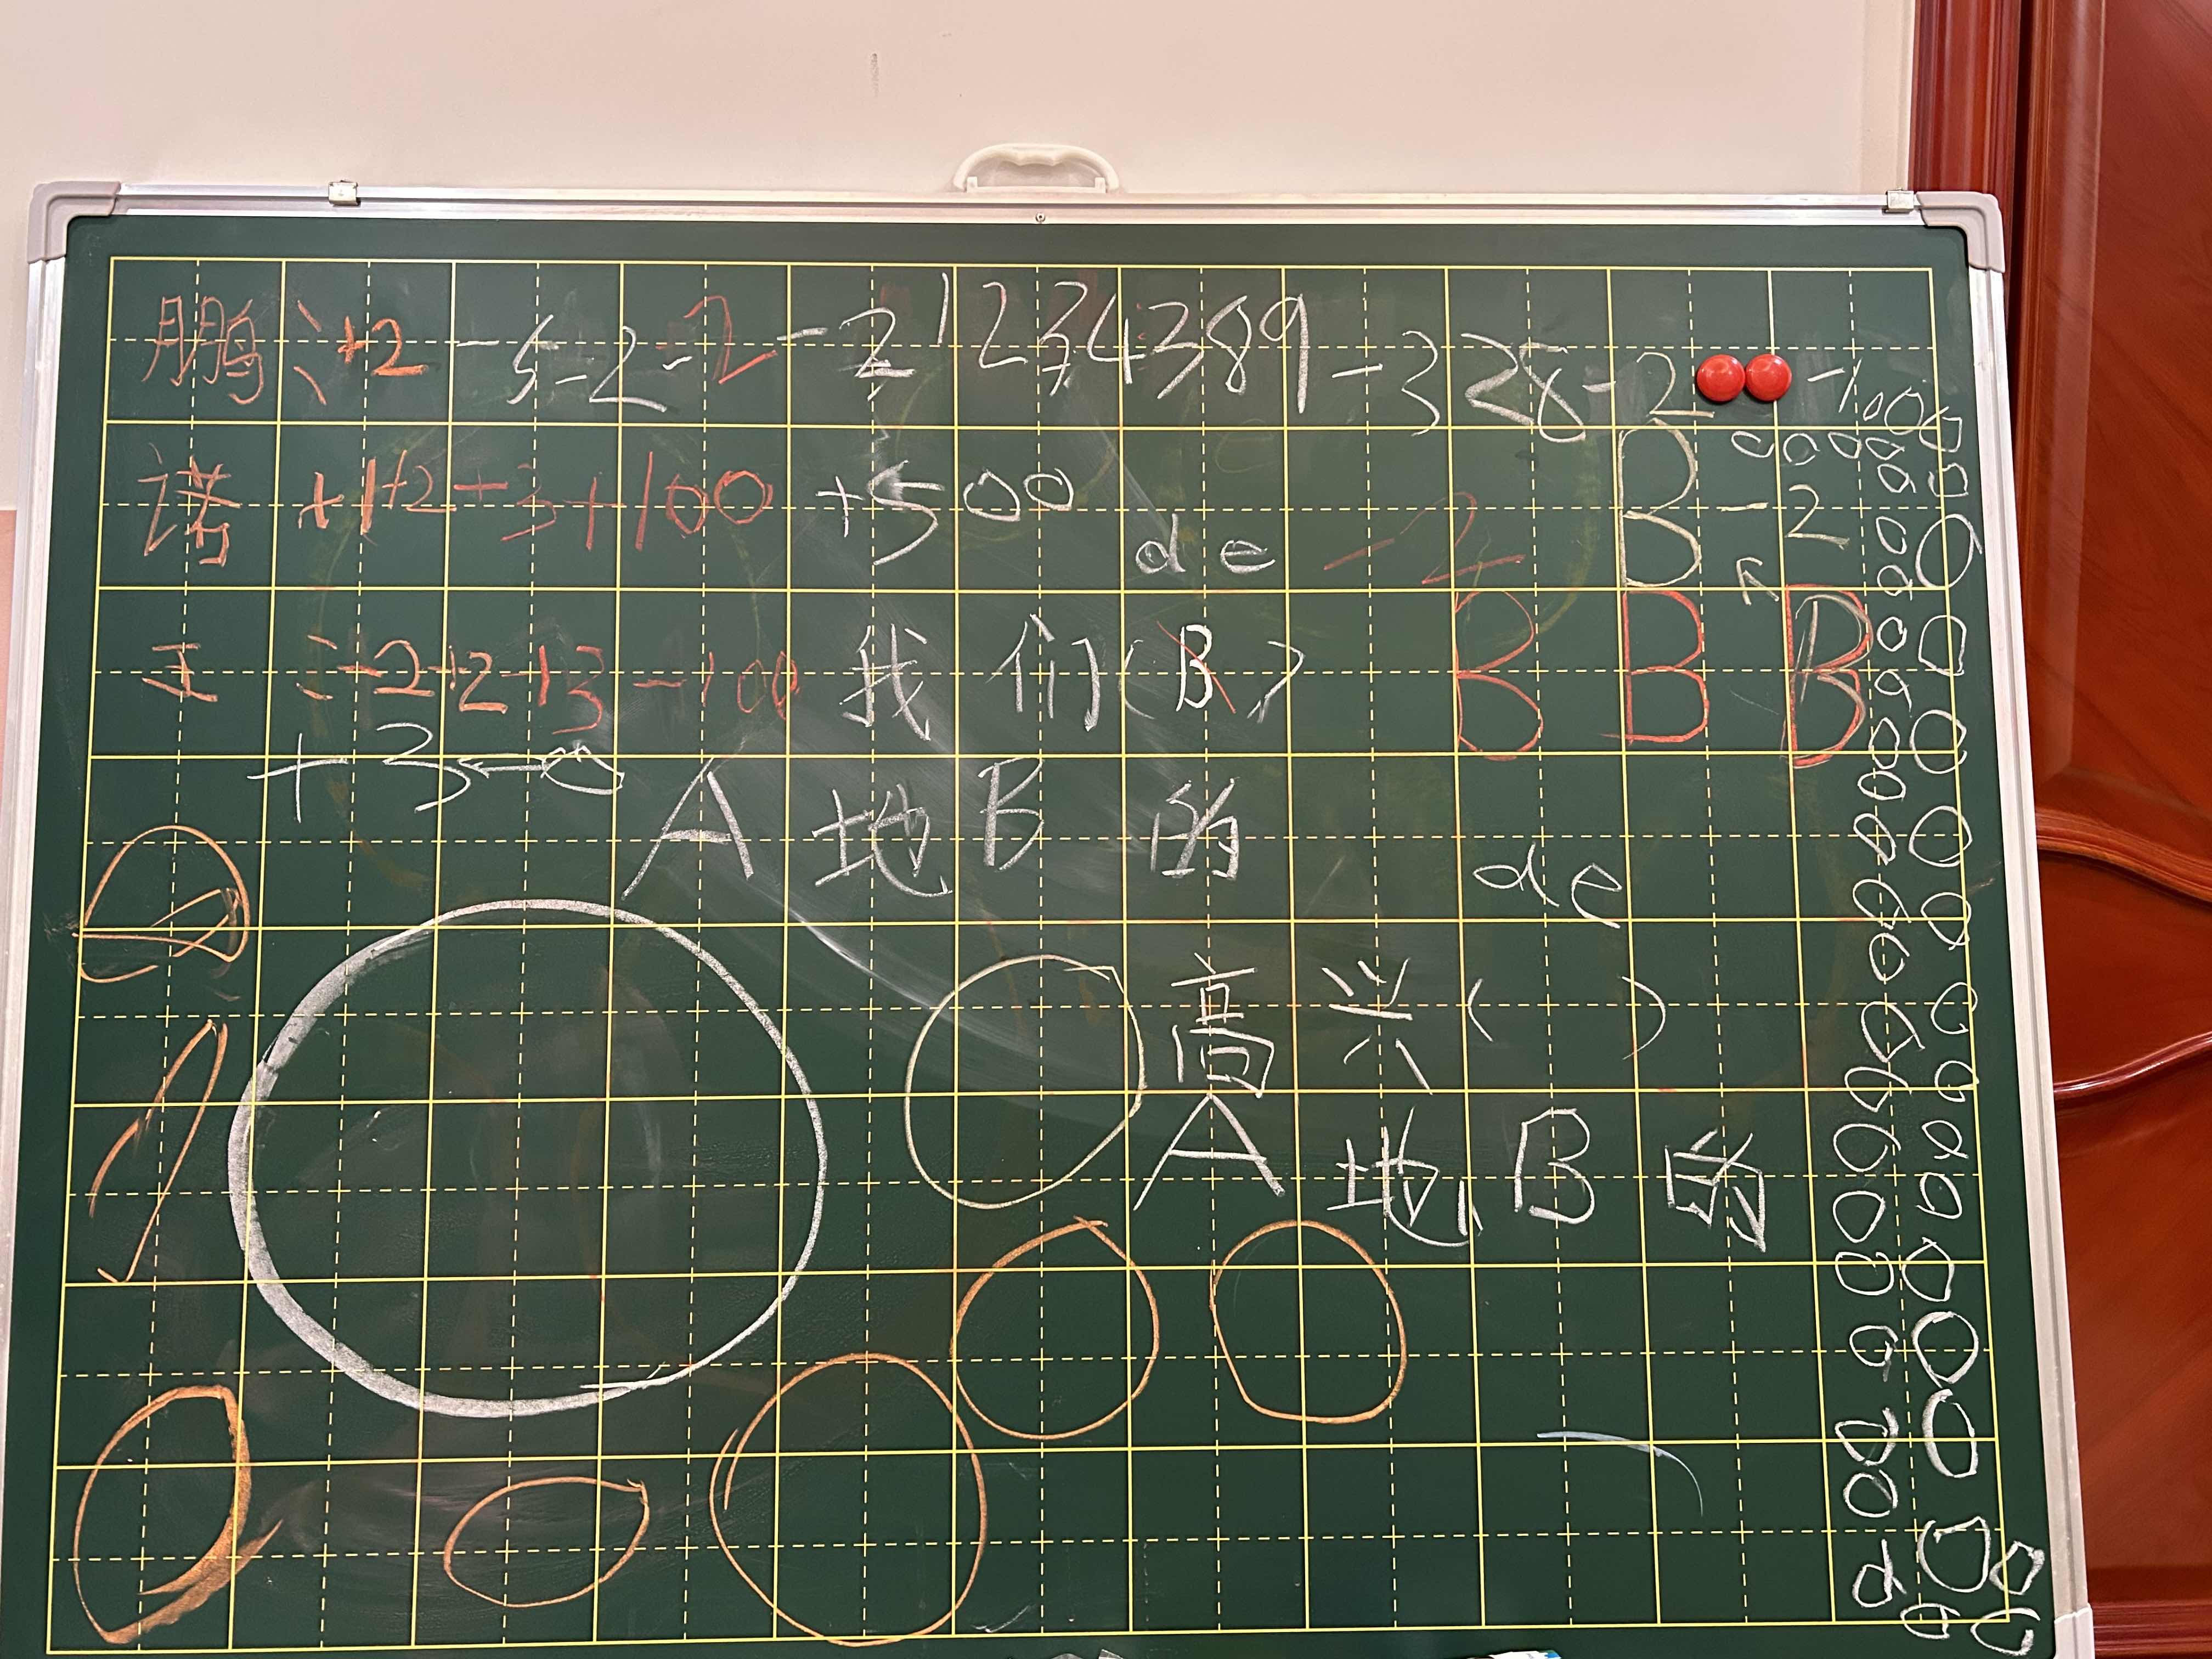 鹏 : +2 -5 -2 -2 -2 1234389 -328 -2 -100000000
诺 +1+2+3+100 +500 de -2 B -2
王 : -2+2+3-100 我们(B) B B B
+3
A 地 B 的 de
高兴( )
A 地 B 的